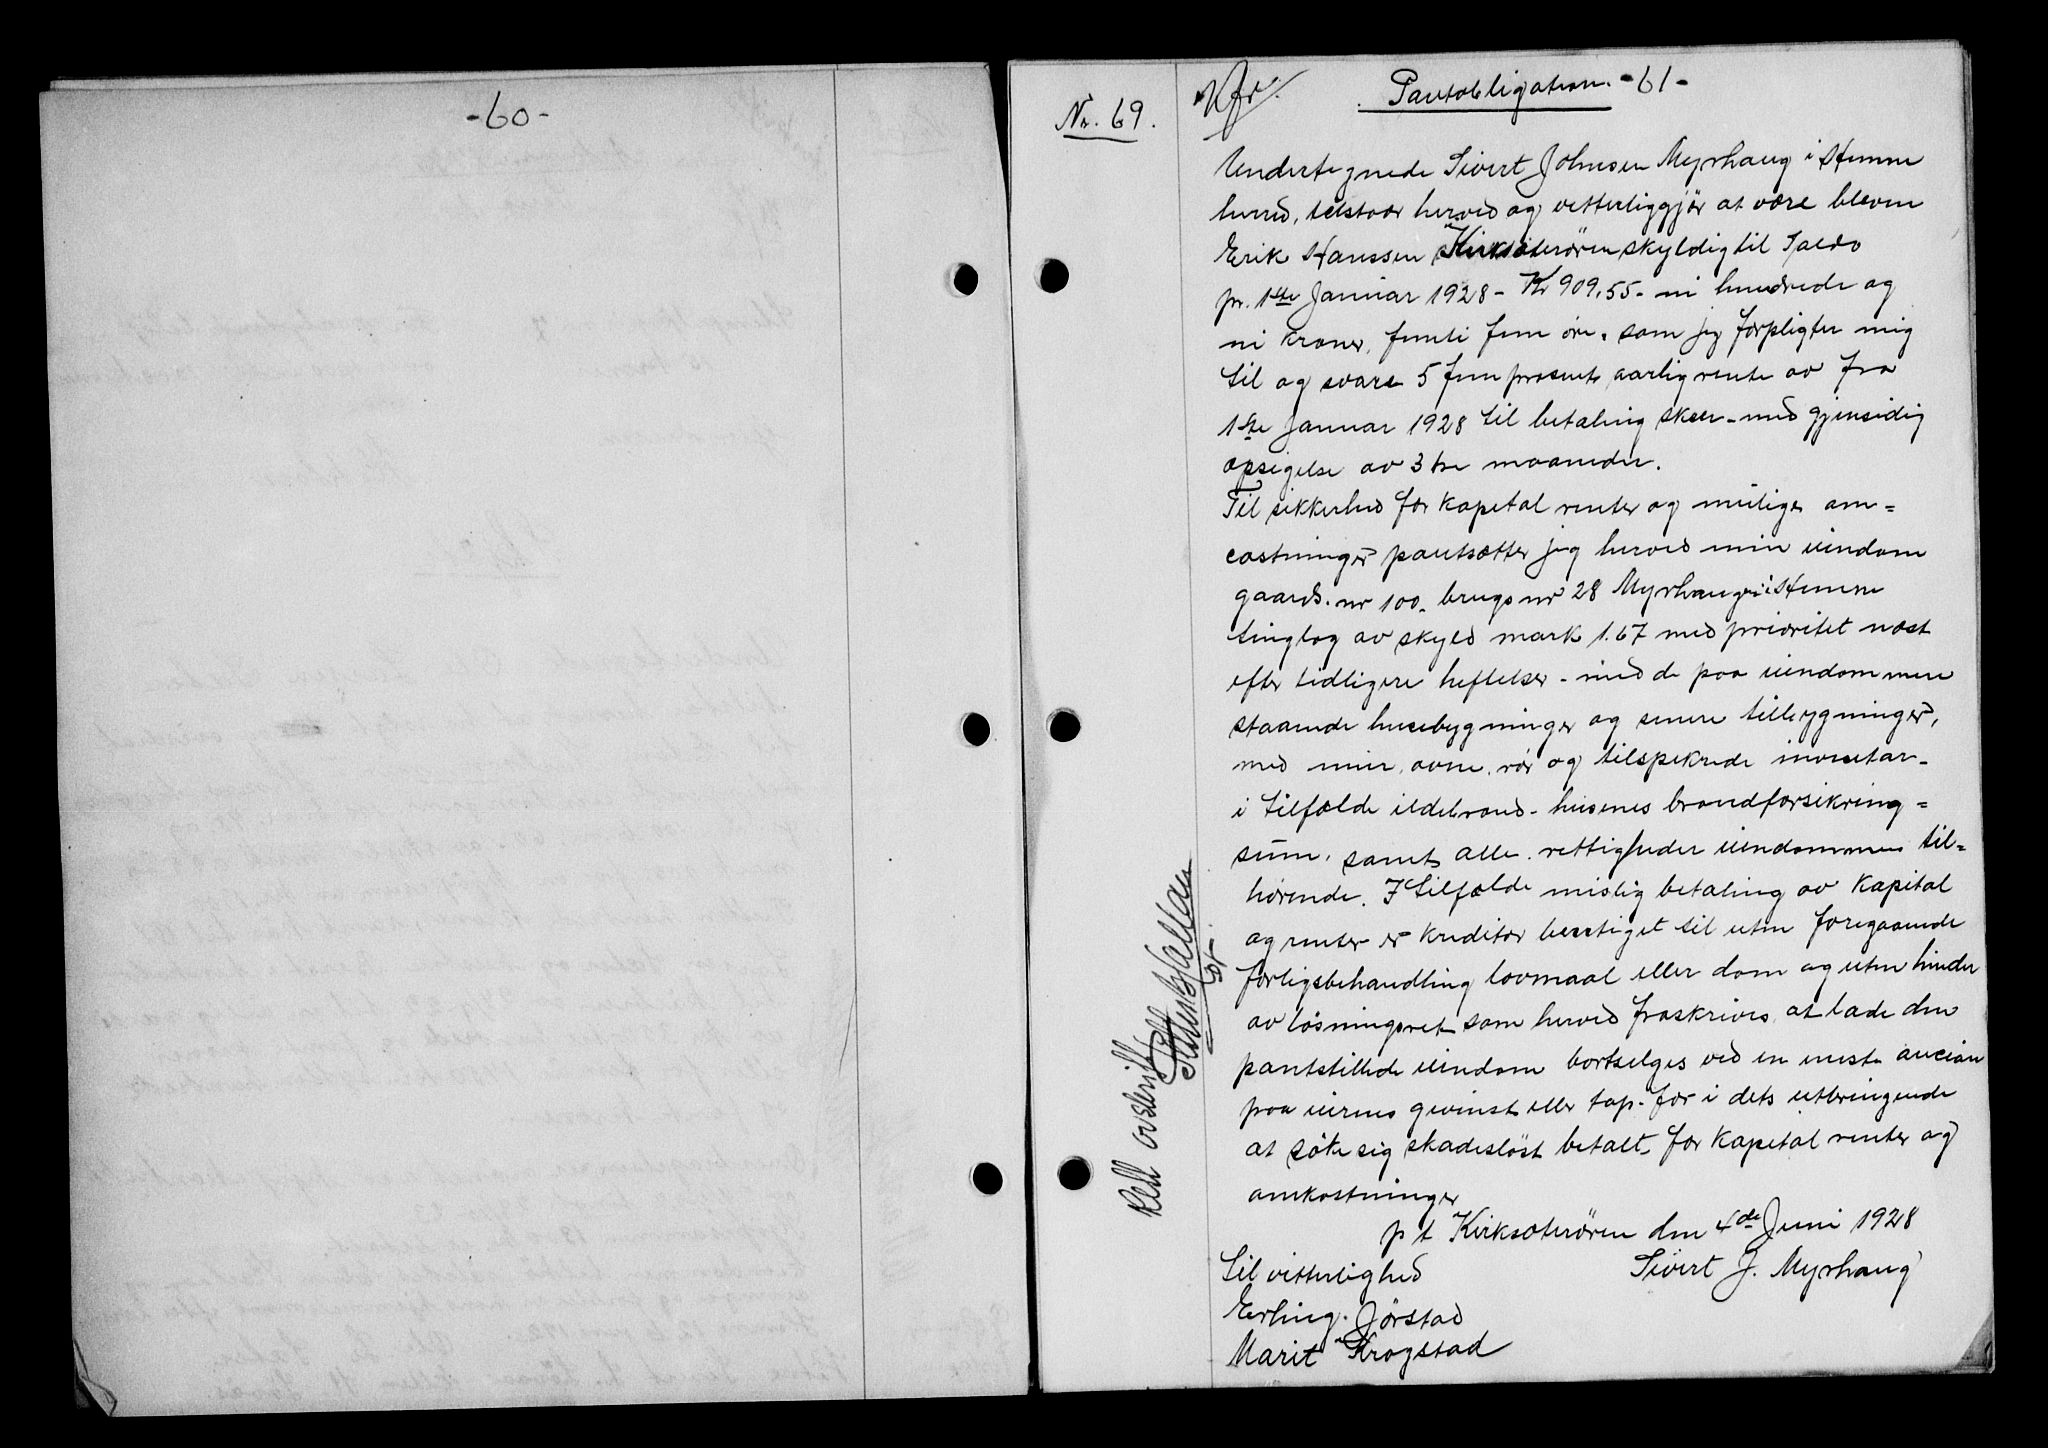 -60-
Nr. 69.
Pantobligation. -61-
Undertegnede Sivert Johnsen Myrhaug i Hemne
herred, tilstaar herved og vitterliggjör at være bleven
Erik Hanssen Kirksæterören skyldig til Saldo
pr. 1ste Januar 1928 - Kr 909,55 - ni hundrede og
ni kroner, femti fem öre. som jeg forpligter mig
til og svare 5 fem prosent aarlig rente av fra
1ste Januar 1928 til betaling skeer - med gjensidig
opsigelse av 3 tre maaneder.
Til sikkerhed for kapital renter og mulige om=
costninger pantsætter jeg herved min eiendom
gaards. nr 100. brugs nr 28 Myrhaug i Hemne
tinglag av skyld mark 1.67 med prioritet næst
efter tidligere heftelser - med de paa eiendommen
staaende husebygninger og senere tilbygninger,
med mur, ovne, rör og tilspikrede inventar -
i tilfælde ildebrand - husenes brandforsikring=
sum, samt alle rettigheder eiendommen til=
hörende. I tilfælde mislig betaling av kapital
og renter er kreditor berettiget til uten foregaaende
forligsbehandling lovmaal eller dom og uten hinder
av lösningsret som herved fraskrives at lade den
pantstillede eiendom bortselges ved en enest. aucion
paa eiernes gevinst eller tap. for i dets utbringende
at söke sig skadeslöst betalt for kapital renter og
omkostninger
p t Kirksæterören den 4de Juni 1928
Til vitterlighed
Sivert J. Myrhaug
Erling. Jörstad
Marit Krogstad
Rett avskrift